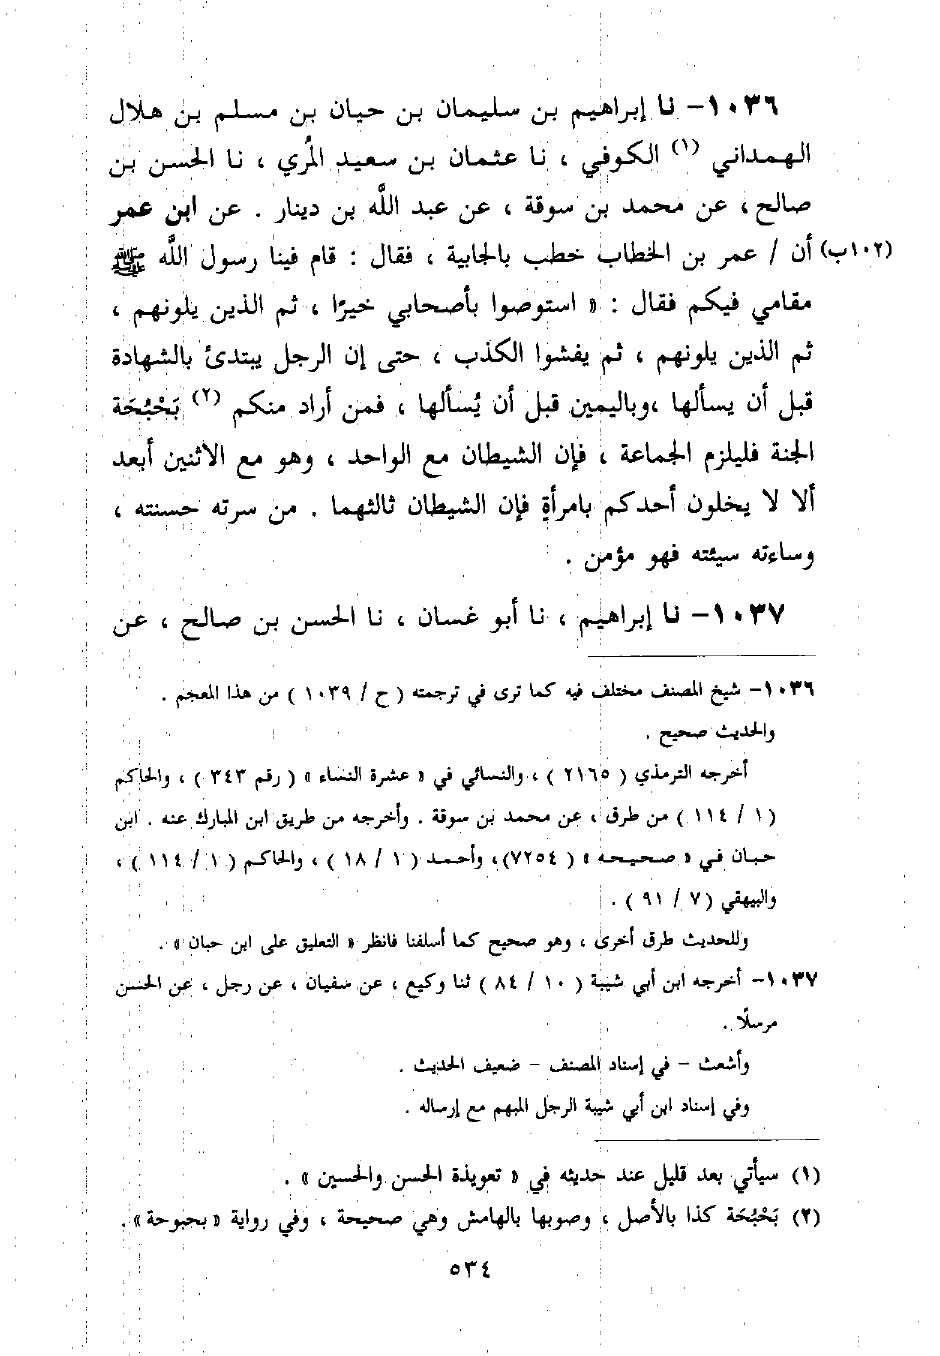 ١٠٣٦- نا إبراهيم بن سليمان بن حيان بن مسلم بن هلال
الهمداني (١) الكوفي ، نا عثمان بن سعيد المُري ، نا الحسن بن
صالح، عن محمد بن سوقة ، عن عبد الله بن دينار . عن ابن عمر
(١٠٢ب) أن / عمر بن الخطاب خطب بالجابية ، فقال : قام فينا رسول الله ﷺ
مقامي فيكم فقال : « استوصوا بأصحابي خيرًا ، ثم الذين يلونهم ،
ثم الذين يلونهم ، ثم يفشوا الكذب ، حتى إن الرجل يبتدئ بالشهادة
قبل أن يسألها ،وباليمين قبل أن يُسألها ، فمن أراد منكم (٢) بَحْبُحَة
الجنة فليلزم الجماعة ، فإن الشيطان مع الواحد ، وهو مع الاثنين أبعد
ألا لا يخلون أحدكم بامرأةٍ فإن الشيطان ثالثهما . من سرته حسنته ،
وساءته سيئته فهو مؤمن .
١٠٣٧- نا إبراهيم ، نا أبو غسان ، نا الحسن بن صالح ، عن
١٠٣٦- شيخ المصنف مختلف فيه كما ترى في ترجمته ( ح / ١٠٣٩ ) من هذا المعجم .
والحديث صحيح .
أخرجه الترمذي ( ٢١٦٥ ) ، والنسائي في « عشرة النساء » ( رقم ٣٤٣ ) ، والحاكم
( ١ / ١١٤ ) من طرق ، عن محمد بن سوقة . وأخرجه من طريق ابن المبارك عنه . ابن
حبان في « صحيحه » ( ٧٢٥٤)، وأحمد ( ١ / ١٨ ) ، والحاكم ( ١ / ١١٤ ) ،
والبيهقي ( ٧ / ٩١ ) .
وللحديث طرق أخرى ، وهو صحيح كما أسلفنا فانظر « التعليق على ابن حبان » .
١٠٣٧- أخرجه ابن أبي شيبة ( ١٠ / ٨٤ ) ثنا وكيع ، عن سفيان ، عن رجل ، عن الحسن
مرسلًا .
وأشعث - في إسناد المصنف - ضعيف الحديث .
وفي إسناد ابن أبي شيبة الرجل المبهم مع إرساله .
(١) سيأتي بعد قليل عند حديثه في « تعويذة الحسن والحسين » .
(٢) بَحْبُحَة كذا بالأصل ، وصوبها بالهامش وهي صحيحة ، وفي رواية « بحبوحة » .
٥٣٤